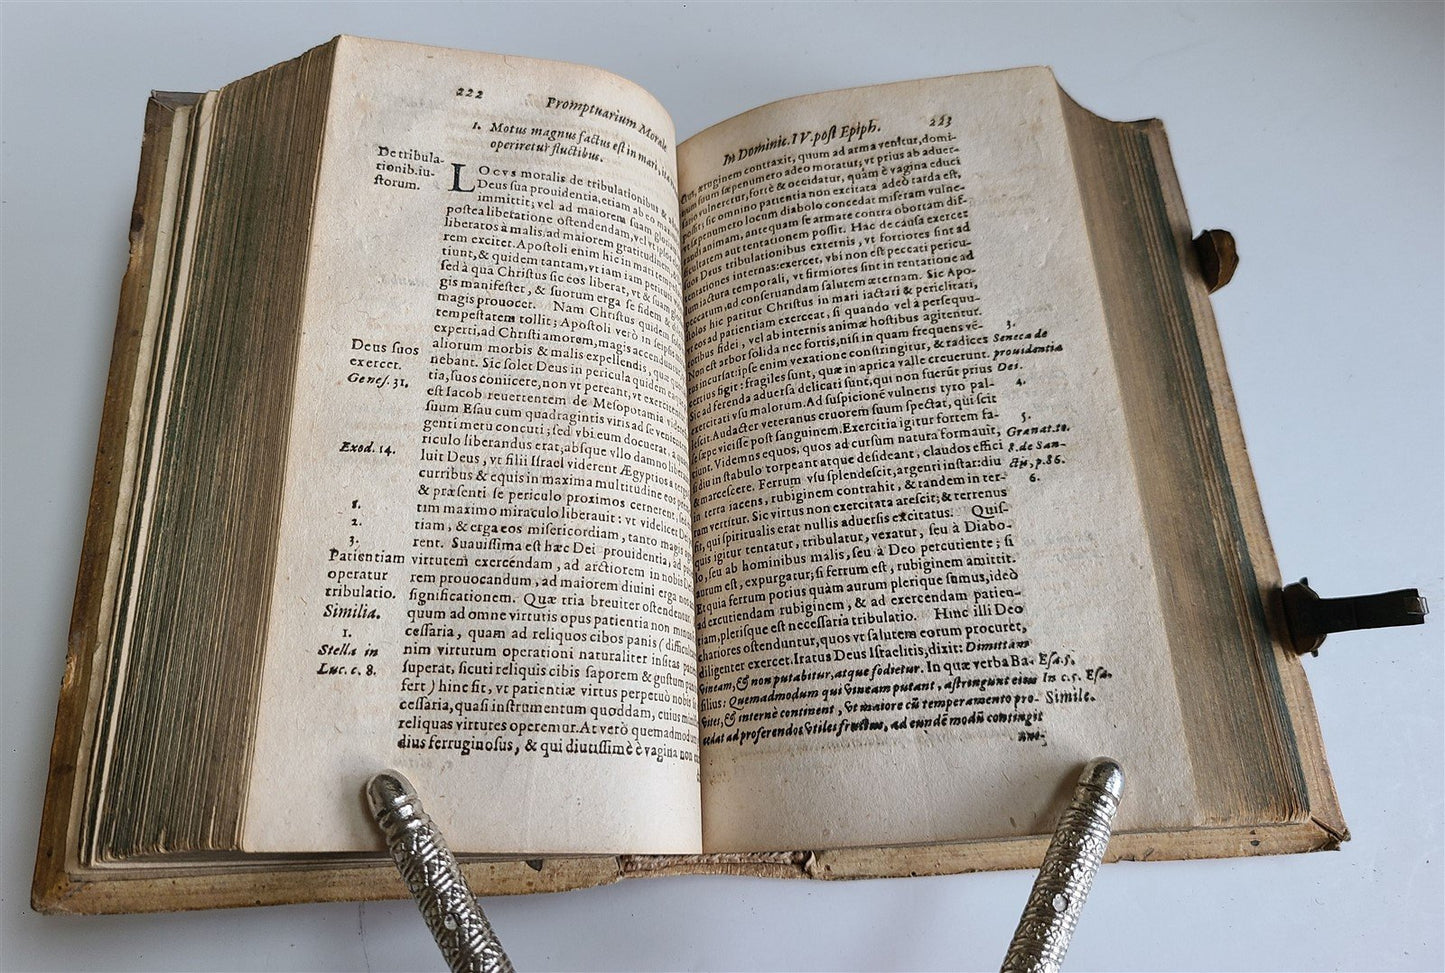 222
Promptuarium Morale
1. Motus magnus factus est in mari,
operiretur fluctibus.
De tribula-
tionib. iu-
storum.
LOcvs moralis de tribulationibus &
Deus sua prouidentia, etiam ab eo
immittit; vel ad maiorem suam
postea liberatione ostendendam, vel vt ipsos
liberatos à malis, ad maiorem gratitudinem
rem exciter. Apostoli enim hic in mari tem
tiunt, & quidem tantam, vt iam iam perituri
sed à qua Christus sic eos liberat, vt & suam
gis manifestet, & suorum erga se fidem &
magis prouocet. Nam Christus quidem
tempestatem tollit; Apostoli verò in
experti, ad Christi amorem, magis accenduntur
Deus suos
exercet.
Genes. 31.
aliorum morbis & malis expellendis, quæ
nebant. Sic solet Deus in pericula quidem
tia, suos coniicere, non vt pereant, vt exercitent
est Iacob reuertentem de Mesopotamia
suum Esau cum quadragintis viris ad se venientem
genti metu concuti; sed vbi eum docuerat, à
Exod. 14.
riculo liberandus erat, absque vllo damno liberat
luit Deus, vt filii Israel viderent Ægyptios à tergo
curribus & equis in maxima multitudine eos
& præsenti se periculo proximos cernerent, sed
1.
tim maximo miraculo liberauit: vt videlicet
2.
tiam, & erga eos misericordiam, tanto magis
3.
rent. Suauissima est hæc Dei prouidentia, ad
Patientiam
operatur
tribulatio.
Similia.
virtutem exercendam, ad arctiorem in nobis
rem prouocandum, ad maiorem diuini erga nos
significationem. Quæ tria breuiter ostendentur.
quum ad omne virtutis opus patientia non minus
1.
Stella in
Luc. c. 8.
cessaria, quam ad reliquos cibos panis (difficultatem
nim virtutum operationi naturaliter insitas
superat, sicuti reliquis cibis saporem & gustum panis
fert) hinc fit, vt patientiæ virtus perpetuò nobis
cessaria, quasi instrumentum quoddam, cuius
reliquas virtutes operemur. At verò quemadmodum
dius ferruginosus, & qui diutissimè è vagina non
In Dominic. IV. post Epiph.
223
æruginem contraxit, quum ad arma venitur, domi-
num suum sæpenumero adeo moratur; vt prius ab aduer-
sario vulneretur, fortè & occidatur, quàm è vagina educi
possit; sic omnino patientia non excitata adeò tarda est,
vt sæpenumero locum diabolo concedat miseram vulne-
randi animam, antequam se armare contra obortam dif-
ficultatem aut tentationem possit. Hac de causa exercet
suos Deus tribulationibus externis, vt fortiores sint ad
tentationes internas: exercet, vbi non est peccati pericu-
lum iactura temporali, vt firmiores sint in tentatione ad
peccatum, ad conseruandam salutem æternam. Sic Apo-
stolos hic patitur Christus in mari iactari & periclitari,
vt eos ad patientiam exerceat, si quando vel à persequu-
toribus fidei, vel ab internis animæ hostibus agitentur.
3.
Seneca de
prouidentia
Dei.
Non est arbor solida nec fortis, nisi in quam frequens vē-
tus incursat: ipse enim vexatione constringitur, & radices
certius figit: fragiles sunt, quæ in aprica valle creuerunt.
4.
Sic ad ferenda aduersa delicati sunt, qui non fuerūt prius
exercitati vsu malorum. Ad suspicionē vulneris tyro pal-
lescit. Audacter veteranus cruorem suum spectat, qui scit
5.
Granat. to.
8. de San-
ctis, p. 86.
6.
sæpe vicisse post sanguinem. Exercitia igitur fortem fa-
ciunt. Videmus equos, quos ad cursum natura formauit,
si diu in stabulo torpeant atque desideant, claudos effici
& marcescere. Ferrum vsu splendescit, argenti instar: diu
in terra iacens, rubiginem contrahit, & tandem in ter-
ram vertitur. Sic virtus non exercitata arescit; & terrenus
fit, qui spiritualis erat nullis aduersis excitatus. Quis-
quis igitur tentatur, tribulatur, vexatur, seu à Diabo-
lo, seu ab hominibus malis, seu à Deo percutiente; si
aurum est, expurgatur; si ferrum est, rubiginem amittit.
Et quia ferrum potius quàm aurum plerique sumus, ideò
ad excutiendam rubiginem, & ad exercendam patien-
tiam, plerisque est necessaria tribulatio. Hinc illi Deo
chariores ostenduntur, quos vt salutem eorum procuret,
diligenter exercet. Iratus Deus Israelitis, dixit: Dimittam
vineam, & non putabitur, atque fodietur. In quæ verba Ba-
Esa. 5.
silius: Quemadmodum qui vineam putant, astringunt eius
In c. 5. Esa.
vites, & internè continent, vt maiore cū temperamento pro-
Simile.
cedat ad proferendos vtiles fructus, ad eundē modū contingit